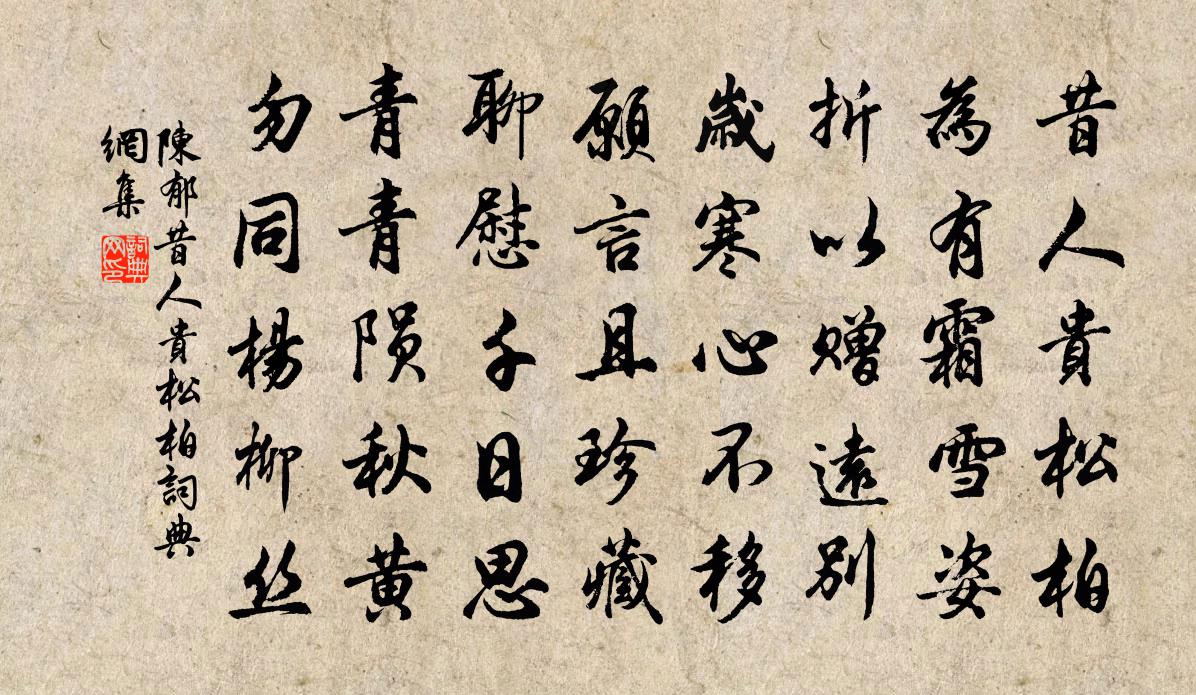 昔人貴松柏
為有霜雪姿
折以赠遠別
歲寒心不移
願言且珍藏
聊慰千日思
青青陨秋黄
勿同楊柳丝
陳郁昔人貴松柏詞典
網集
詞典
网印